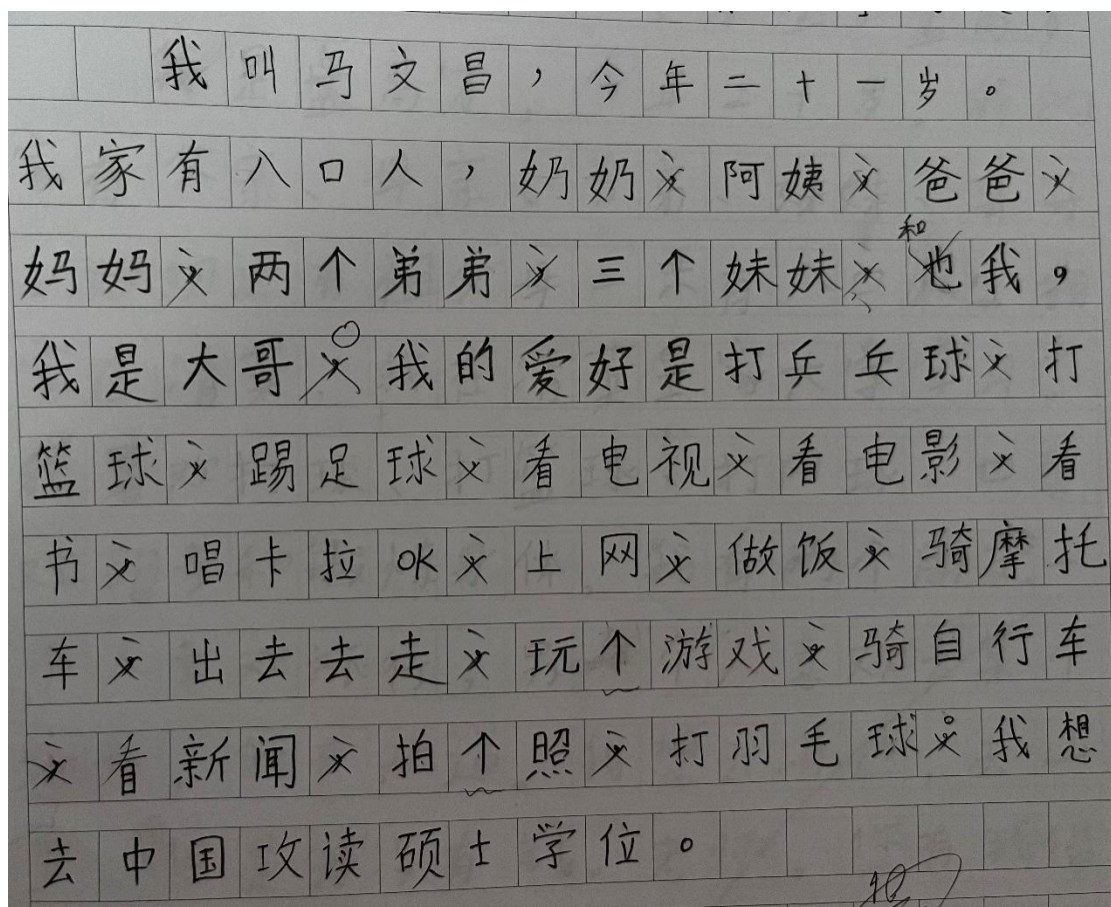 我叫马文昌，今年二十一岁。
我家有八口人，奶奶、阿姨、爸爸、
妈妈、两个弟弟、三个妹妹和我，
我是大哥。我的爱好是打乒乓球、打
篮球、踢足球、看电视、看电影、看
书、唱卡拉OK、上网、做饭、骑摩托
车、出去去走、玩个游戏、骑自行车
、看新闻、拍个照、打羽毛球。我想
去中国攻读硕士学位。